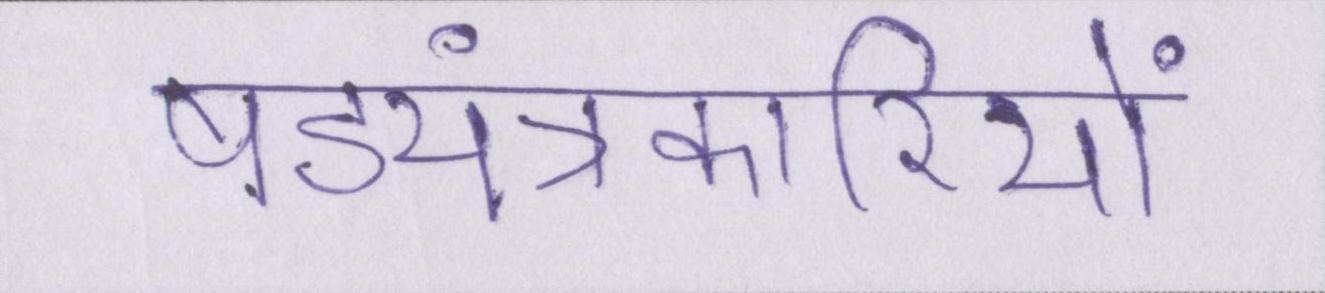 षडयंत्रकारियों